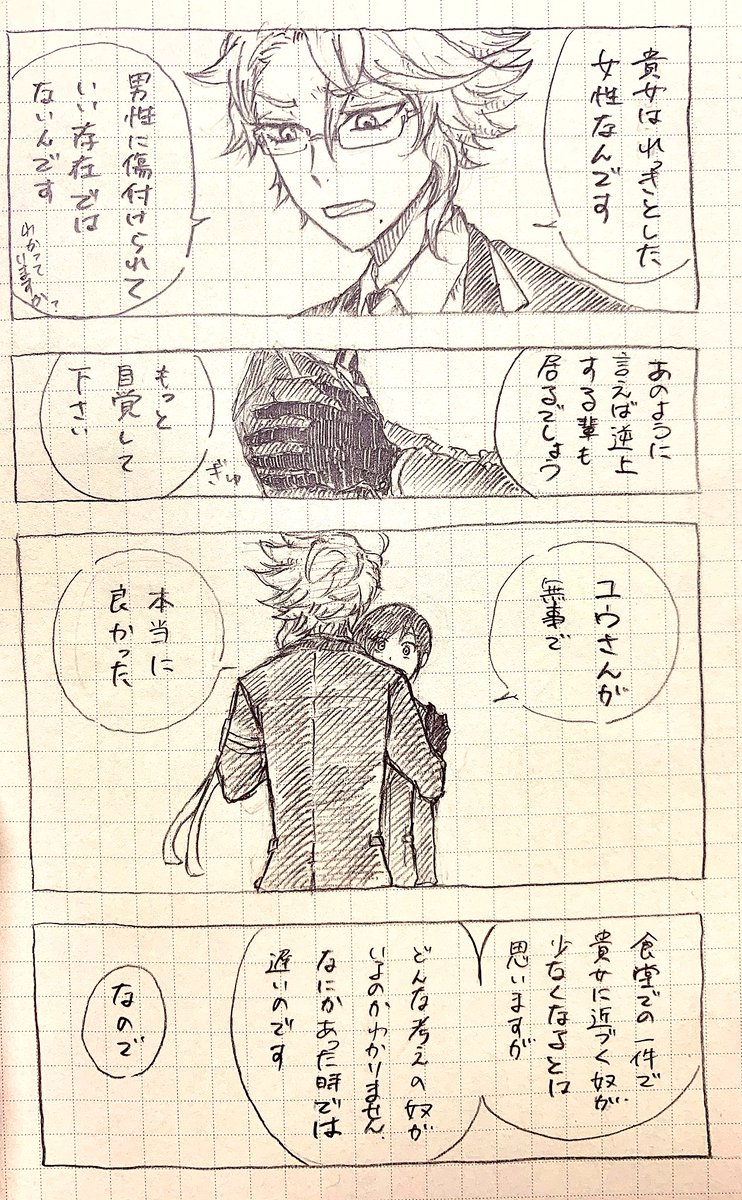 貴女はれっきとした
女性なんです
男性に傷付けられて
いい存在では
ないんです
わかって
いますか?
あのように
言えば逆上
する輩も
居るでしょう
もっと
自覚して
下さい
ぎゅ
ユウさんが
無事で
本当に
良かった
食堂での一件で
貴女に近づく奴が
少なくなるとは
思いますが
どんな考えの奴が
いるのかわかりません
なにかあった時では
遅いのです
なので